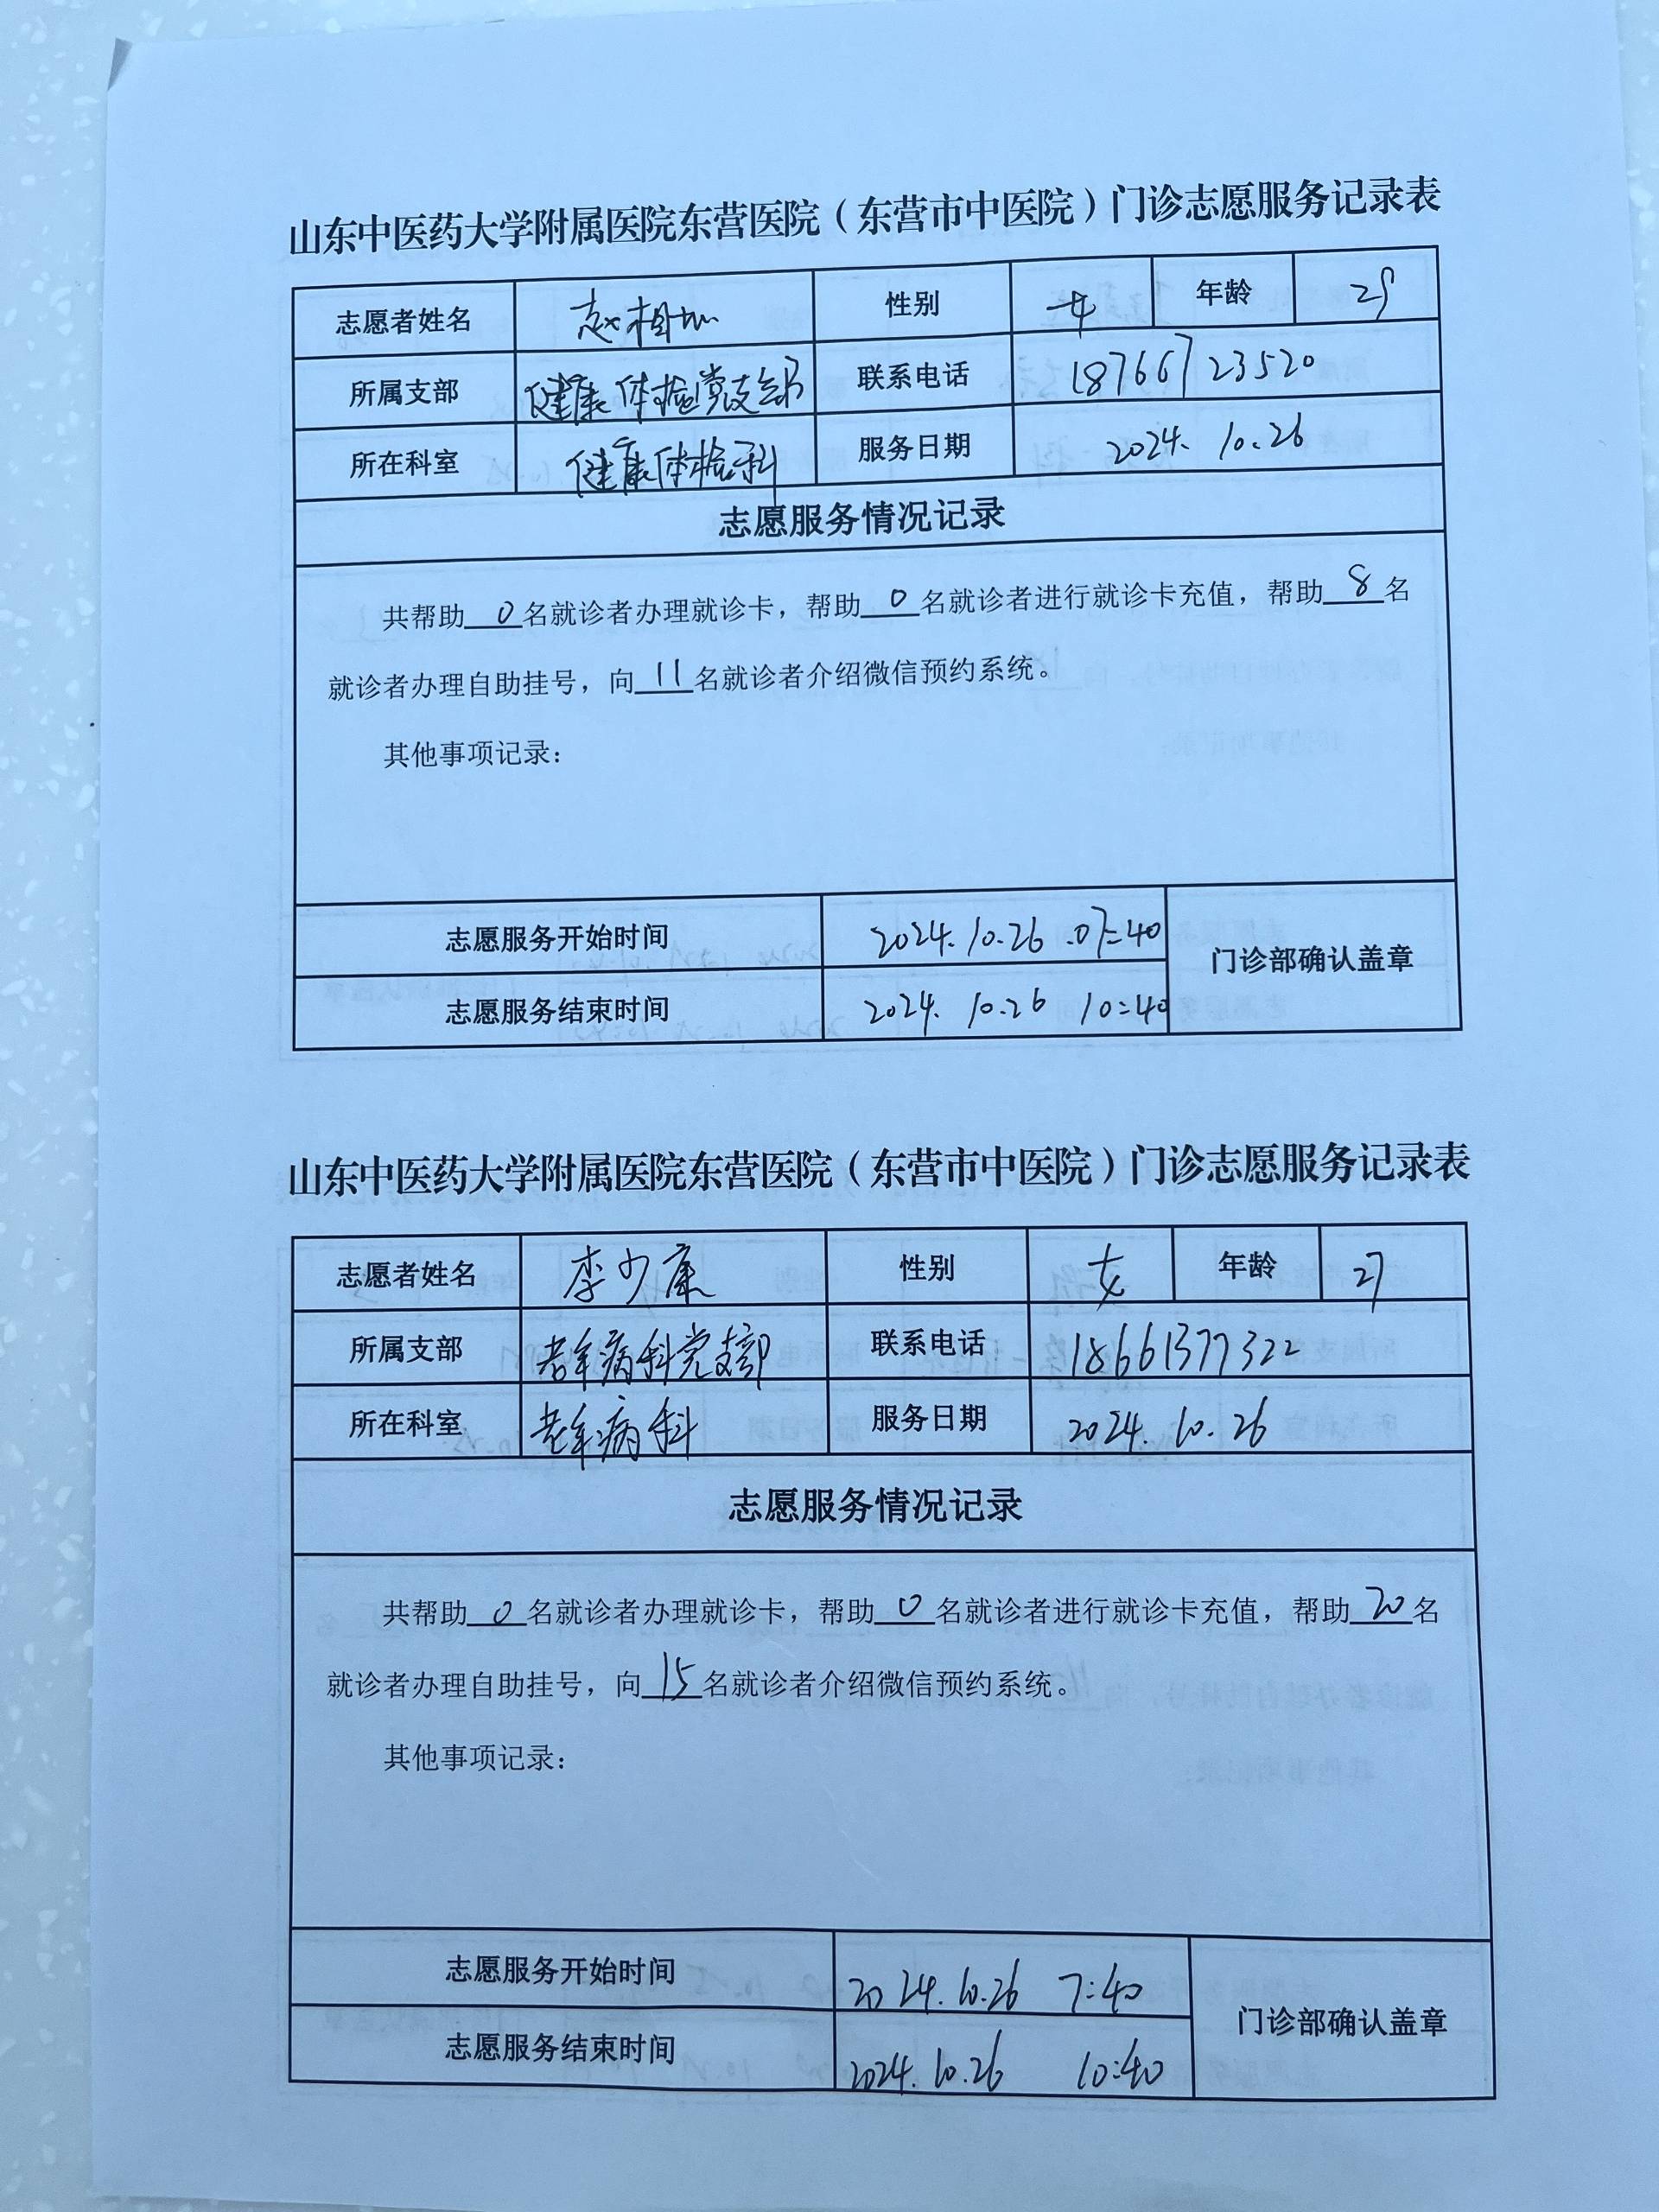 山东中医药大学附属医院东营医院（东营市中医院）门诊志愿服务记录表
志愿者姓名 赵相 性别 女 年龄
所属支部 健康体检党支部 联系电话 18766723520
所在科室 健康体检科 服务日期 2024. 10.26
志愿服务情况记录
共帮助0名就诊者办理就诊卡，帮助0名就诊者进行就诊卡充值，帮助8名
就诊者办理自助挂号，向11名就诊者介绍微信预约系统。
其他事项记录：
志愿服务开始时间 2024.10.26.07:40
门诊部确认盖章
志愿服务结束时间 2024. 10.26 10:40
山东中医药大学附属医院东营医院（东营市中医院）门诊志愿服务记录表
志愿者姓名 李少康 性别 女 年龄 27
所属支部 老年病科党支部 联系电话 18661377322
所在科室 老年病科 服务日期 2024. 10. 26
志愿服务情况记录
共帮助0名就诊者办理就诊卡，帮助0名就诊者进行就诊卡充值，帮助20名
就诊者办理自助挂号，向15名就诊者介绍微信预约系统。
其他事项记录：
志愿服务开始时间 2024.10.26 7:40
门诊部确认盖章
志愿服务结束时间 2024.10.26 10:40